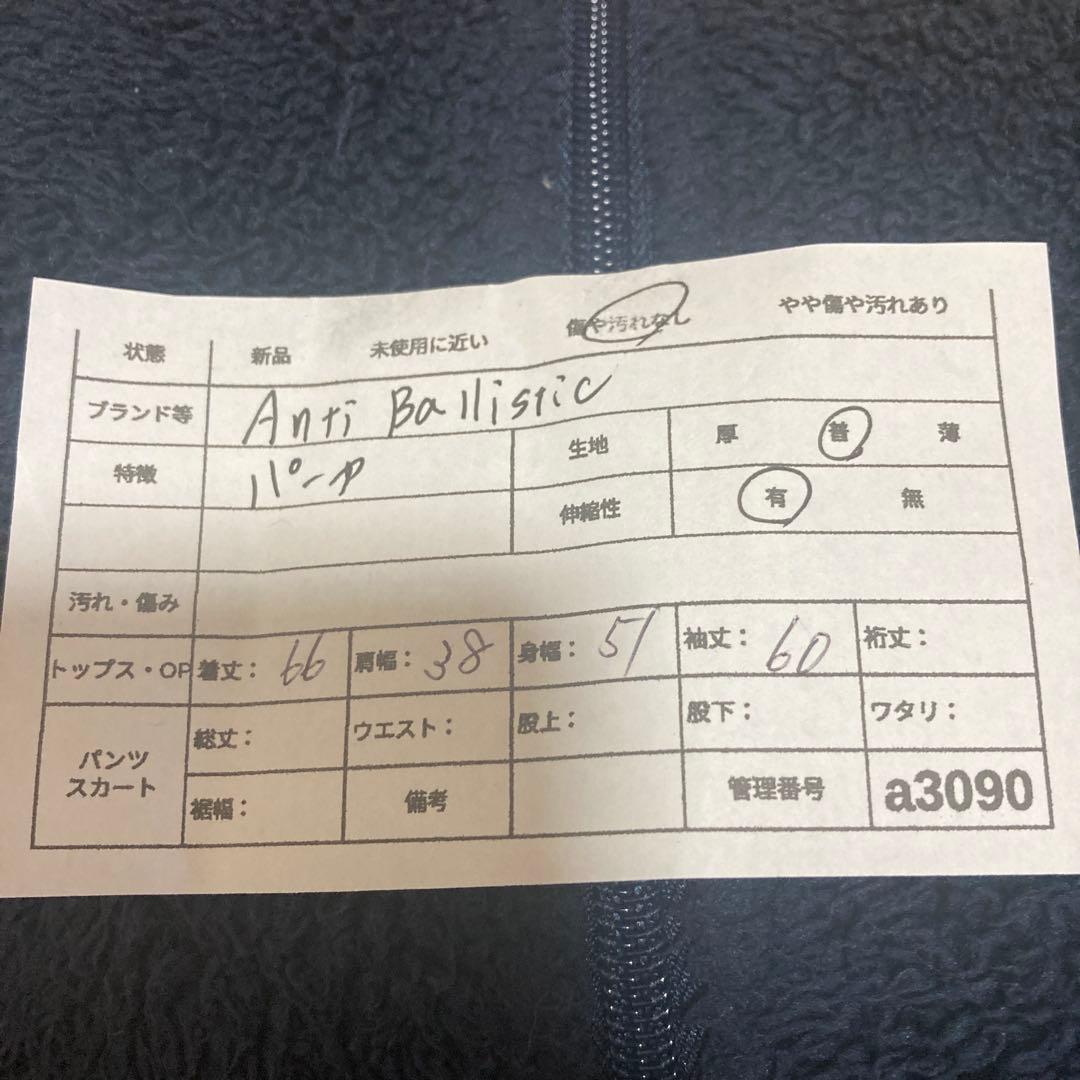 状態 新品 未使用に近い 傷や汚れなし やや傷や汚れあり
ブランド等 Anti Ballistic
特徴 パーカ 生地 厚 普 薄
伸縮性 有 無
汚れ・傷み
トップス・OP 着丈： 66 肩幅： 38 身幅： 51 袖丈： 60 裄丈：
パンツ スカート 総丈： ウエスト： 股上： 股下： ワタリ：
裾幅： 備考 管理番号 a3090